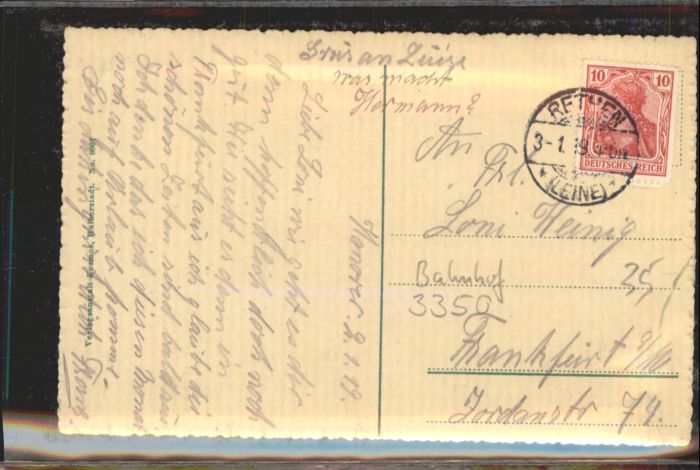 Grus an Luise
was macht
Hermann?
Hanover 2.1.19.
Liebe Loni wie geht es dir
denn hoffendlich doch noch
gut. Wie sieht es denn in
Frankfurt aus ich glaube die
schönen Zeiten sind
Ich denke das ich diesen Monat
noch auf Urlaub komme.
Verlagsanstalt Kosmos, Halberstadt. No. 6007
10 10
DEUTSCHES REICH
RETHEN
3-1.19.
*(LEINE)*
An
Frl.
Loni Wenig
Bahnhof
35,-
3350
Frankfurt a/M
Jordanstr 74.